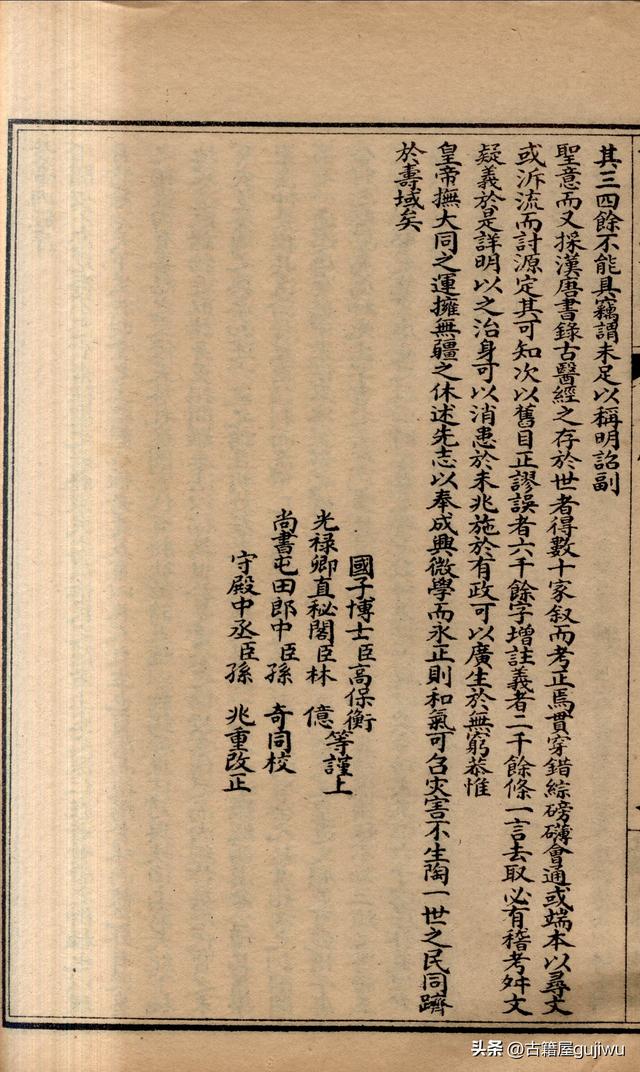 其三四餘不能具竊謂未足以稱明詔副
聖意而又採漢唐書錄古醫經之存於世者得數十家叙而考正焉貫穿錯綜磅礴會通或端本以尋支
或泝流而討源定其可知次以舊目正謬誤者六千餘字增註義者二千餘條一言去取必有稽考舛文
疑義於是詳明以之治身可以消患於未兆施於有政可以廣生於無窮恭惟
皇帝撫大同之運擁無疆之休述先志以奉成興微學而永正則和氣可召灾害不生陶一世之民同躋
於壽域矣
國子博士臣高保衡
光禄卿直秘閣臣林 億 等謹上
尚書屯田郎中臣孫 奇同校
守殿中丞臣孫 兆重改正
头条 @古籍屋gujiwu